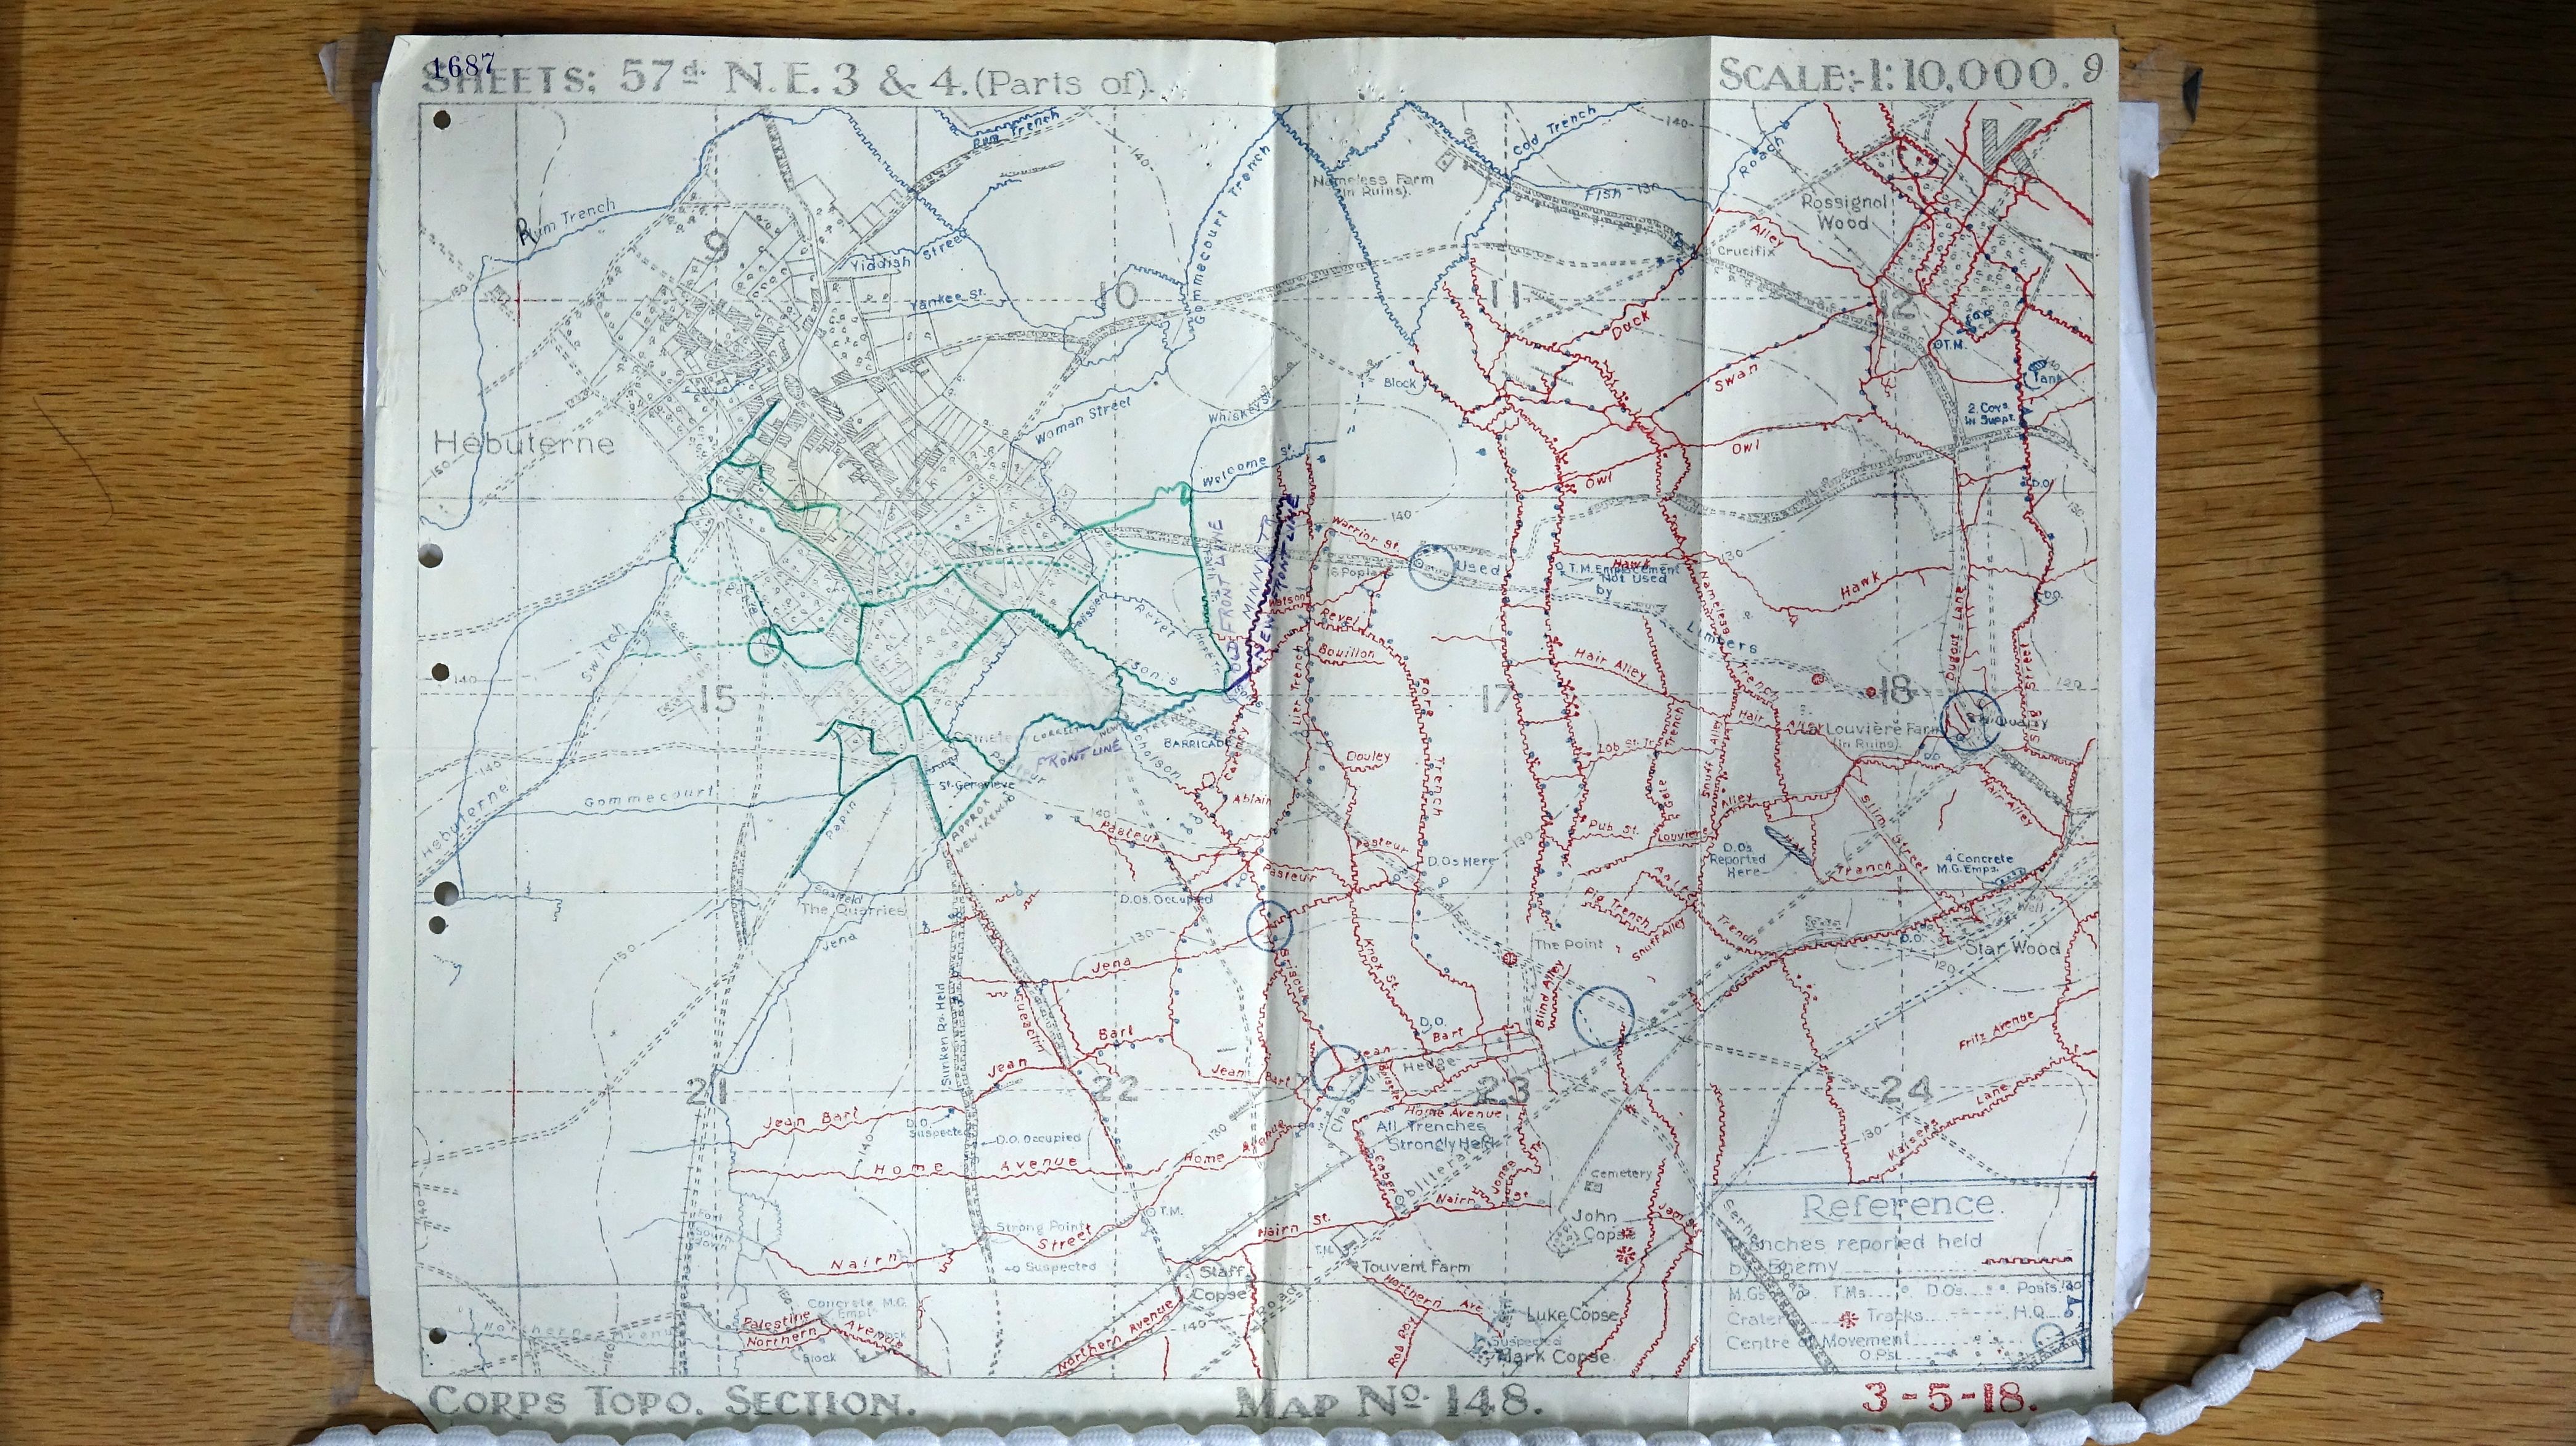 1687
SHEETS: 57d. N.E. 3 & 4. (Parts of).
SCALE:-1:10,000.
9
Rum Trench
Rum Trench
Odd Trench
Road
K
Nameless Farm
(in Ruins).
Fish
Rossignol
Wood
Alley
Crucifix
9
Yiddish Street
Yankee St.
10
Gommecourt Trench
11
12
Duck
T.M.
Tank
Swan
Block
2. Coys
in Suppt.
Hébuterne
Woman Street
Whiskey St.
Welcome St.
Owl
Owl
D.O.
OLD FRONT LINE
MINNY TR
NEW FRONT LINE
Warrior St.
Poplar
Used
T.M. Emplacement
Not Used
by
Limbers
Hawk
Hawk
Nameless
Trench
Dugout Lane
D.O.
Switch
Revel
Bouillon
Hair Alley
Hair
Alley
15
17
18
La Louvière Farm
(in Ruins).
Quarry
Sling Street
FRONT LINE
BARRICADE
Lier Trench
Fore
Trench
Douley
Lob St. Tr.
Snuff Alley
St. Genevieve
APPROX
NEW TRENCH
Gommecourt
Hebuterne
Papin
Ablain
Pasteur
Pasteur
Pasteur
D.Os Here
Pub St.
Louviere
Alley
Slim Street
Hair Alley
D.Os.
Reported
Here
Trench
4 Concrete
M.G. Emps.
The Quarries
Jena
D.Os. Occupied
Pig Trench
Snuff Alley
Trench
Well
Star Wood
The Point
Knox St.
Briscoux
Jena
Blind Alley
Sunken Rd. Held
D.O.
Bart
Bart
Jean
Jean
Jean
Bart
Hedge
Fritz Avenue
21
22
23
24
Jean Bart
D.O.
Suspected
D.O. Occupied
Home Avenue
Home Avenue
Home Avenue
All Trenches
Strongly Held
Kaisers
Lane
Cemetery
Nairn St.
Nairn
Street
Nairn St.
T.M.
Strong Point
Suspected
John
Copse
Touvent Farm
Staff
Copse
Northern Ave.
Luke Copse
Suspected
Mark Copse
Rob Roy
Road
Concrete M.G.
Empl.
Palestine
Avenue
Northern
Block
Northern Avenue
Northern Avenue
Reference.
Trenches reported held
by Enemy
M.Gs. T.Ms. D.Os. Posts
Crater Tracks H.Q.
Centre of Movement
O.Ps.
CORPS TOPO. SECTION.
MAP No. 148.
3-5-18.